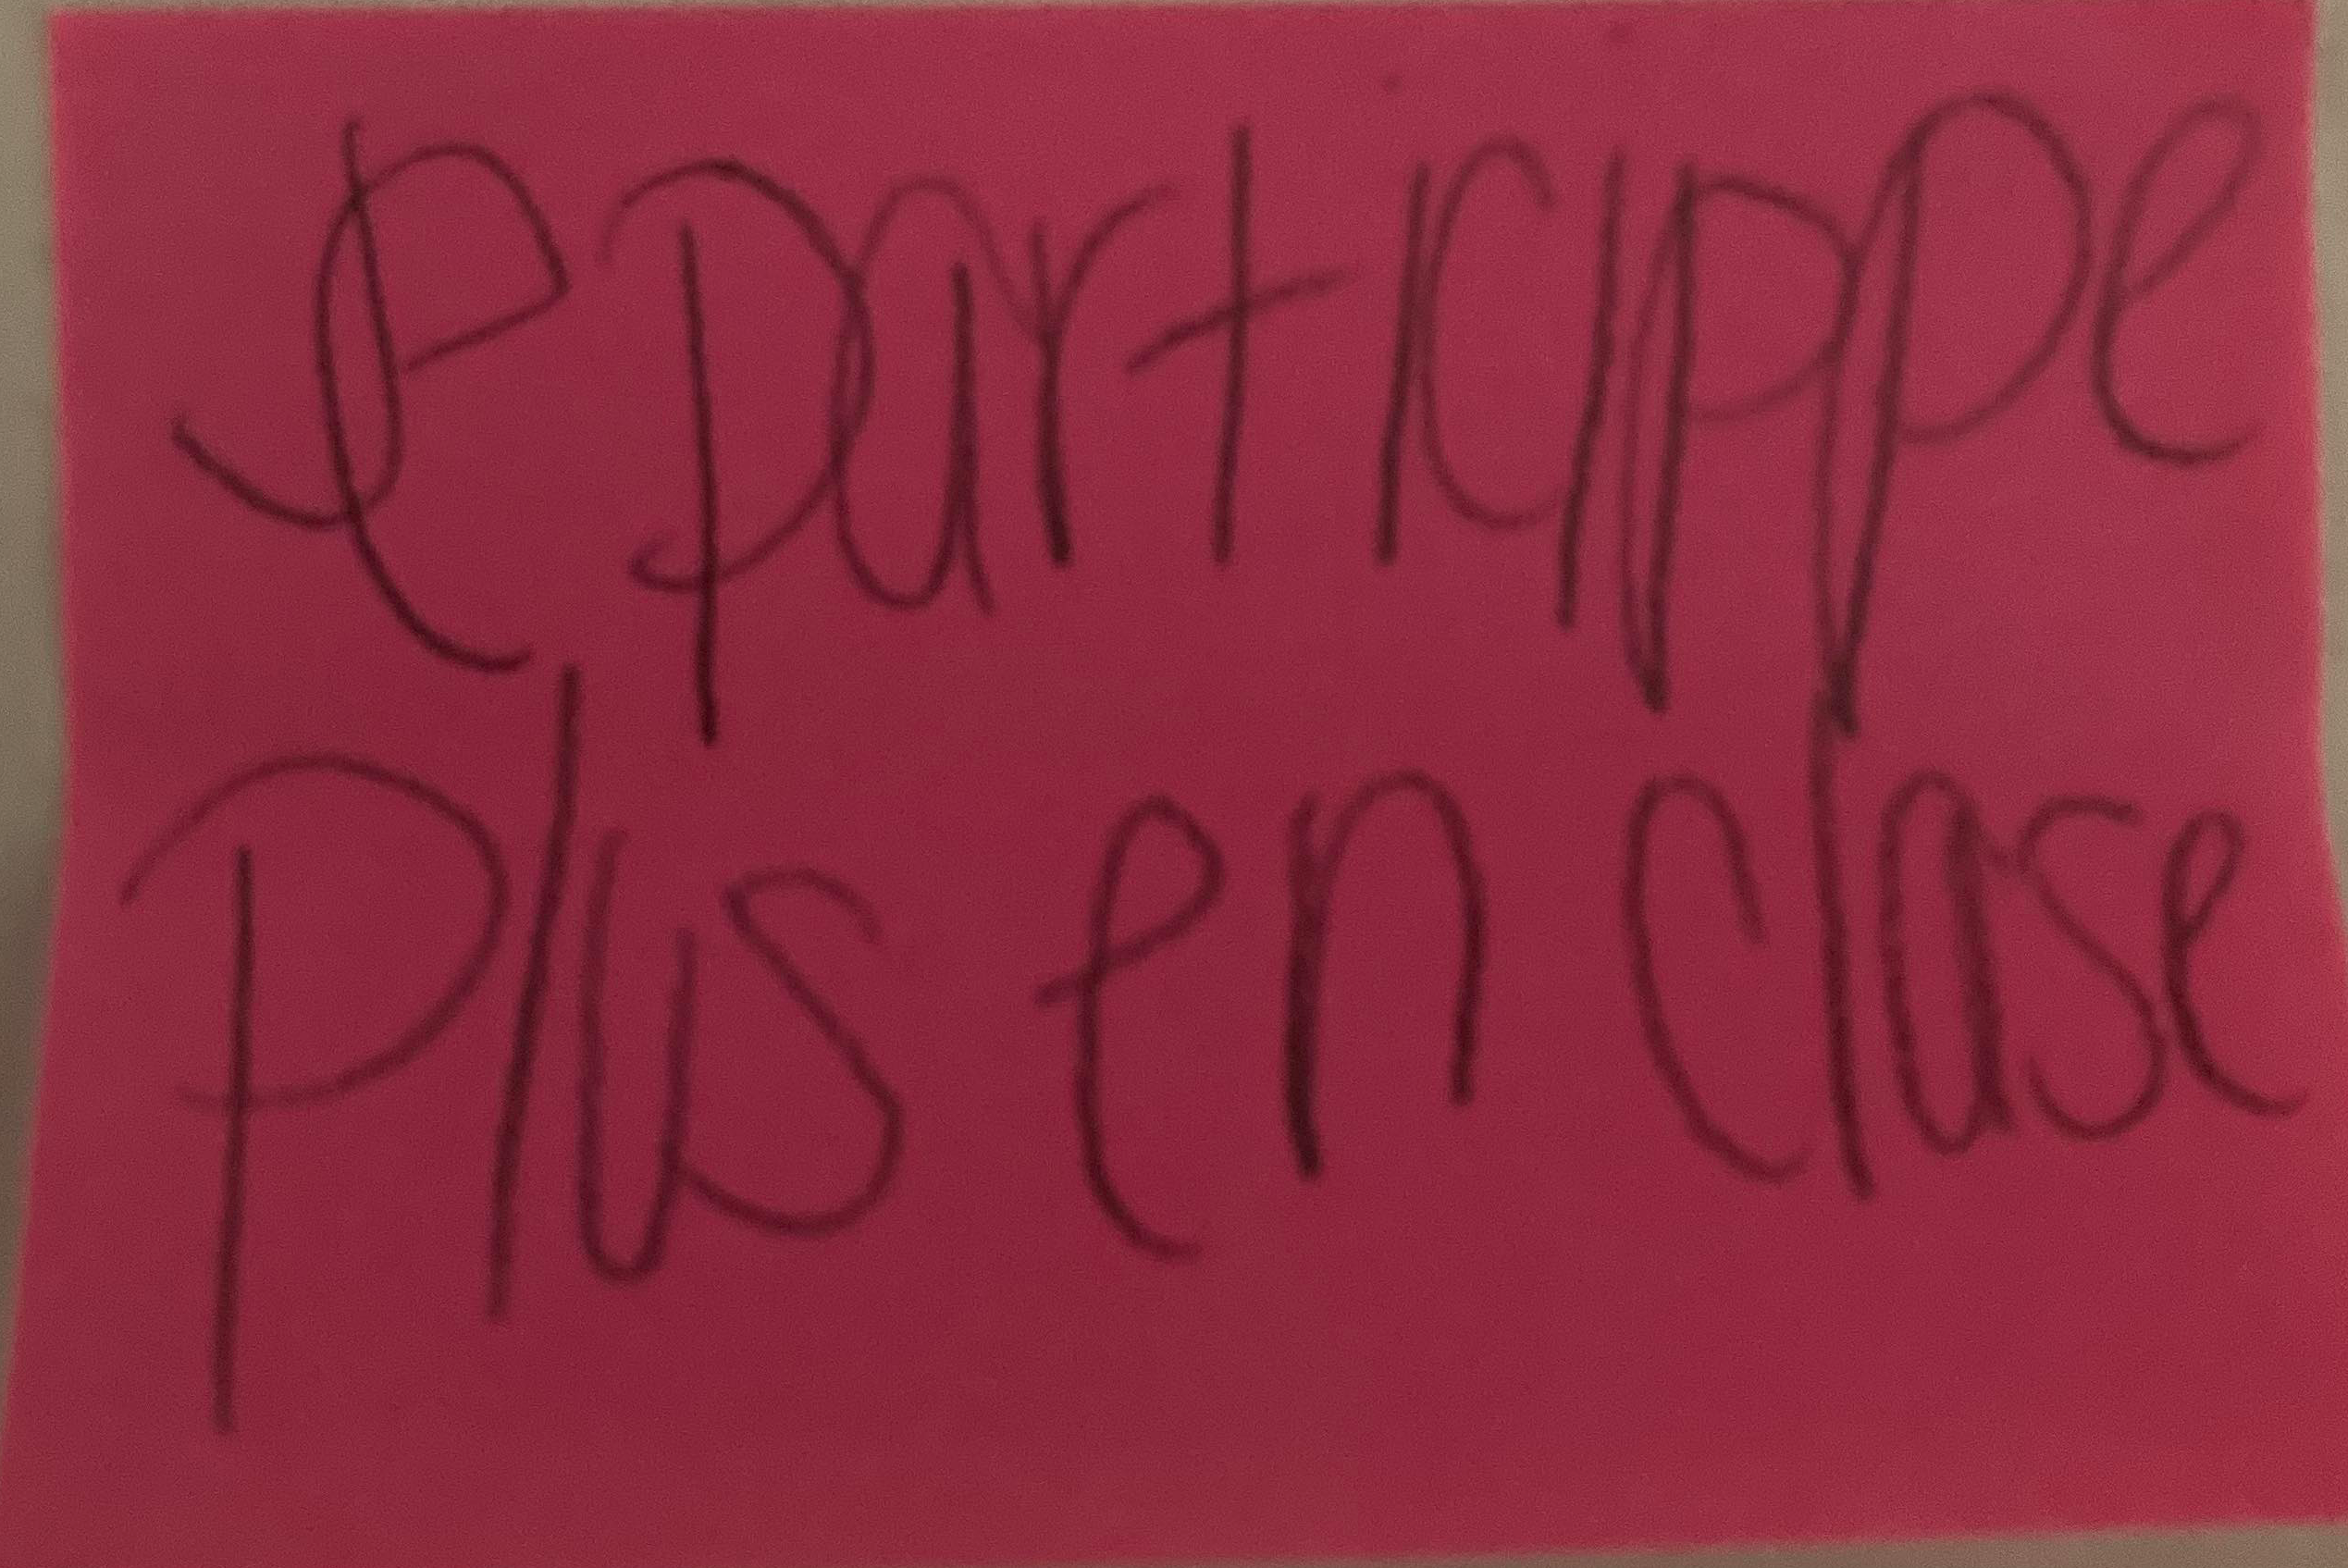 Je particippe
Plus en clase